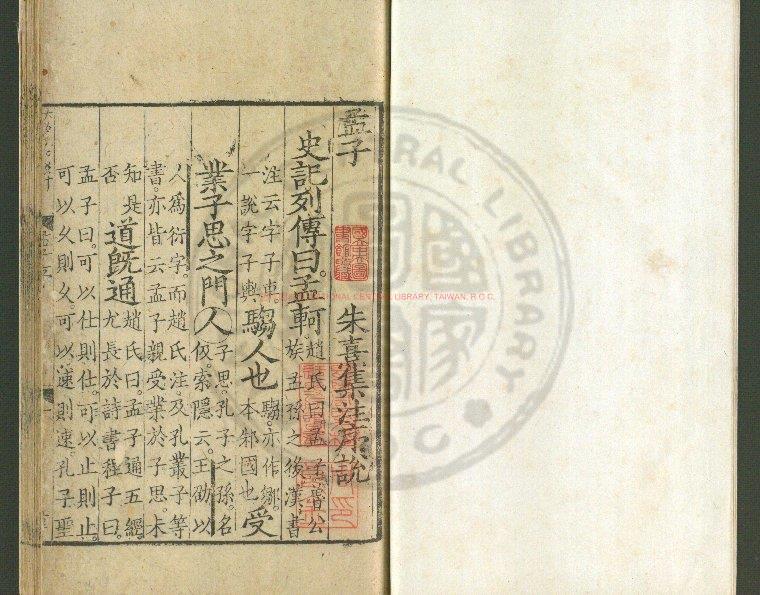 孟子 朱熹集注序說
史記列傳曰。孟軻趙氏曰孟子魯公族孟孫之後漢書
注云字子車。一說字子輿騶人也騶亦作鄒。本邾國也受
業子思之門人子思。孔子之孫。名伋。索隱云。王劭以
人爲衍字。而趙氏注。及孔叢子等書。亦皆云孟子親受業於子思。未
知是否道既通趙氏曰。孟子通五經。尤長於詩書。程子曰。
孟子曰。可以仕則仕。可以止則止。可以久則久。可以速則速。孔子聖
NATIONAL CENTRAL LIBRARY, TAIWAN, R.O.C.